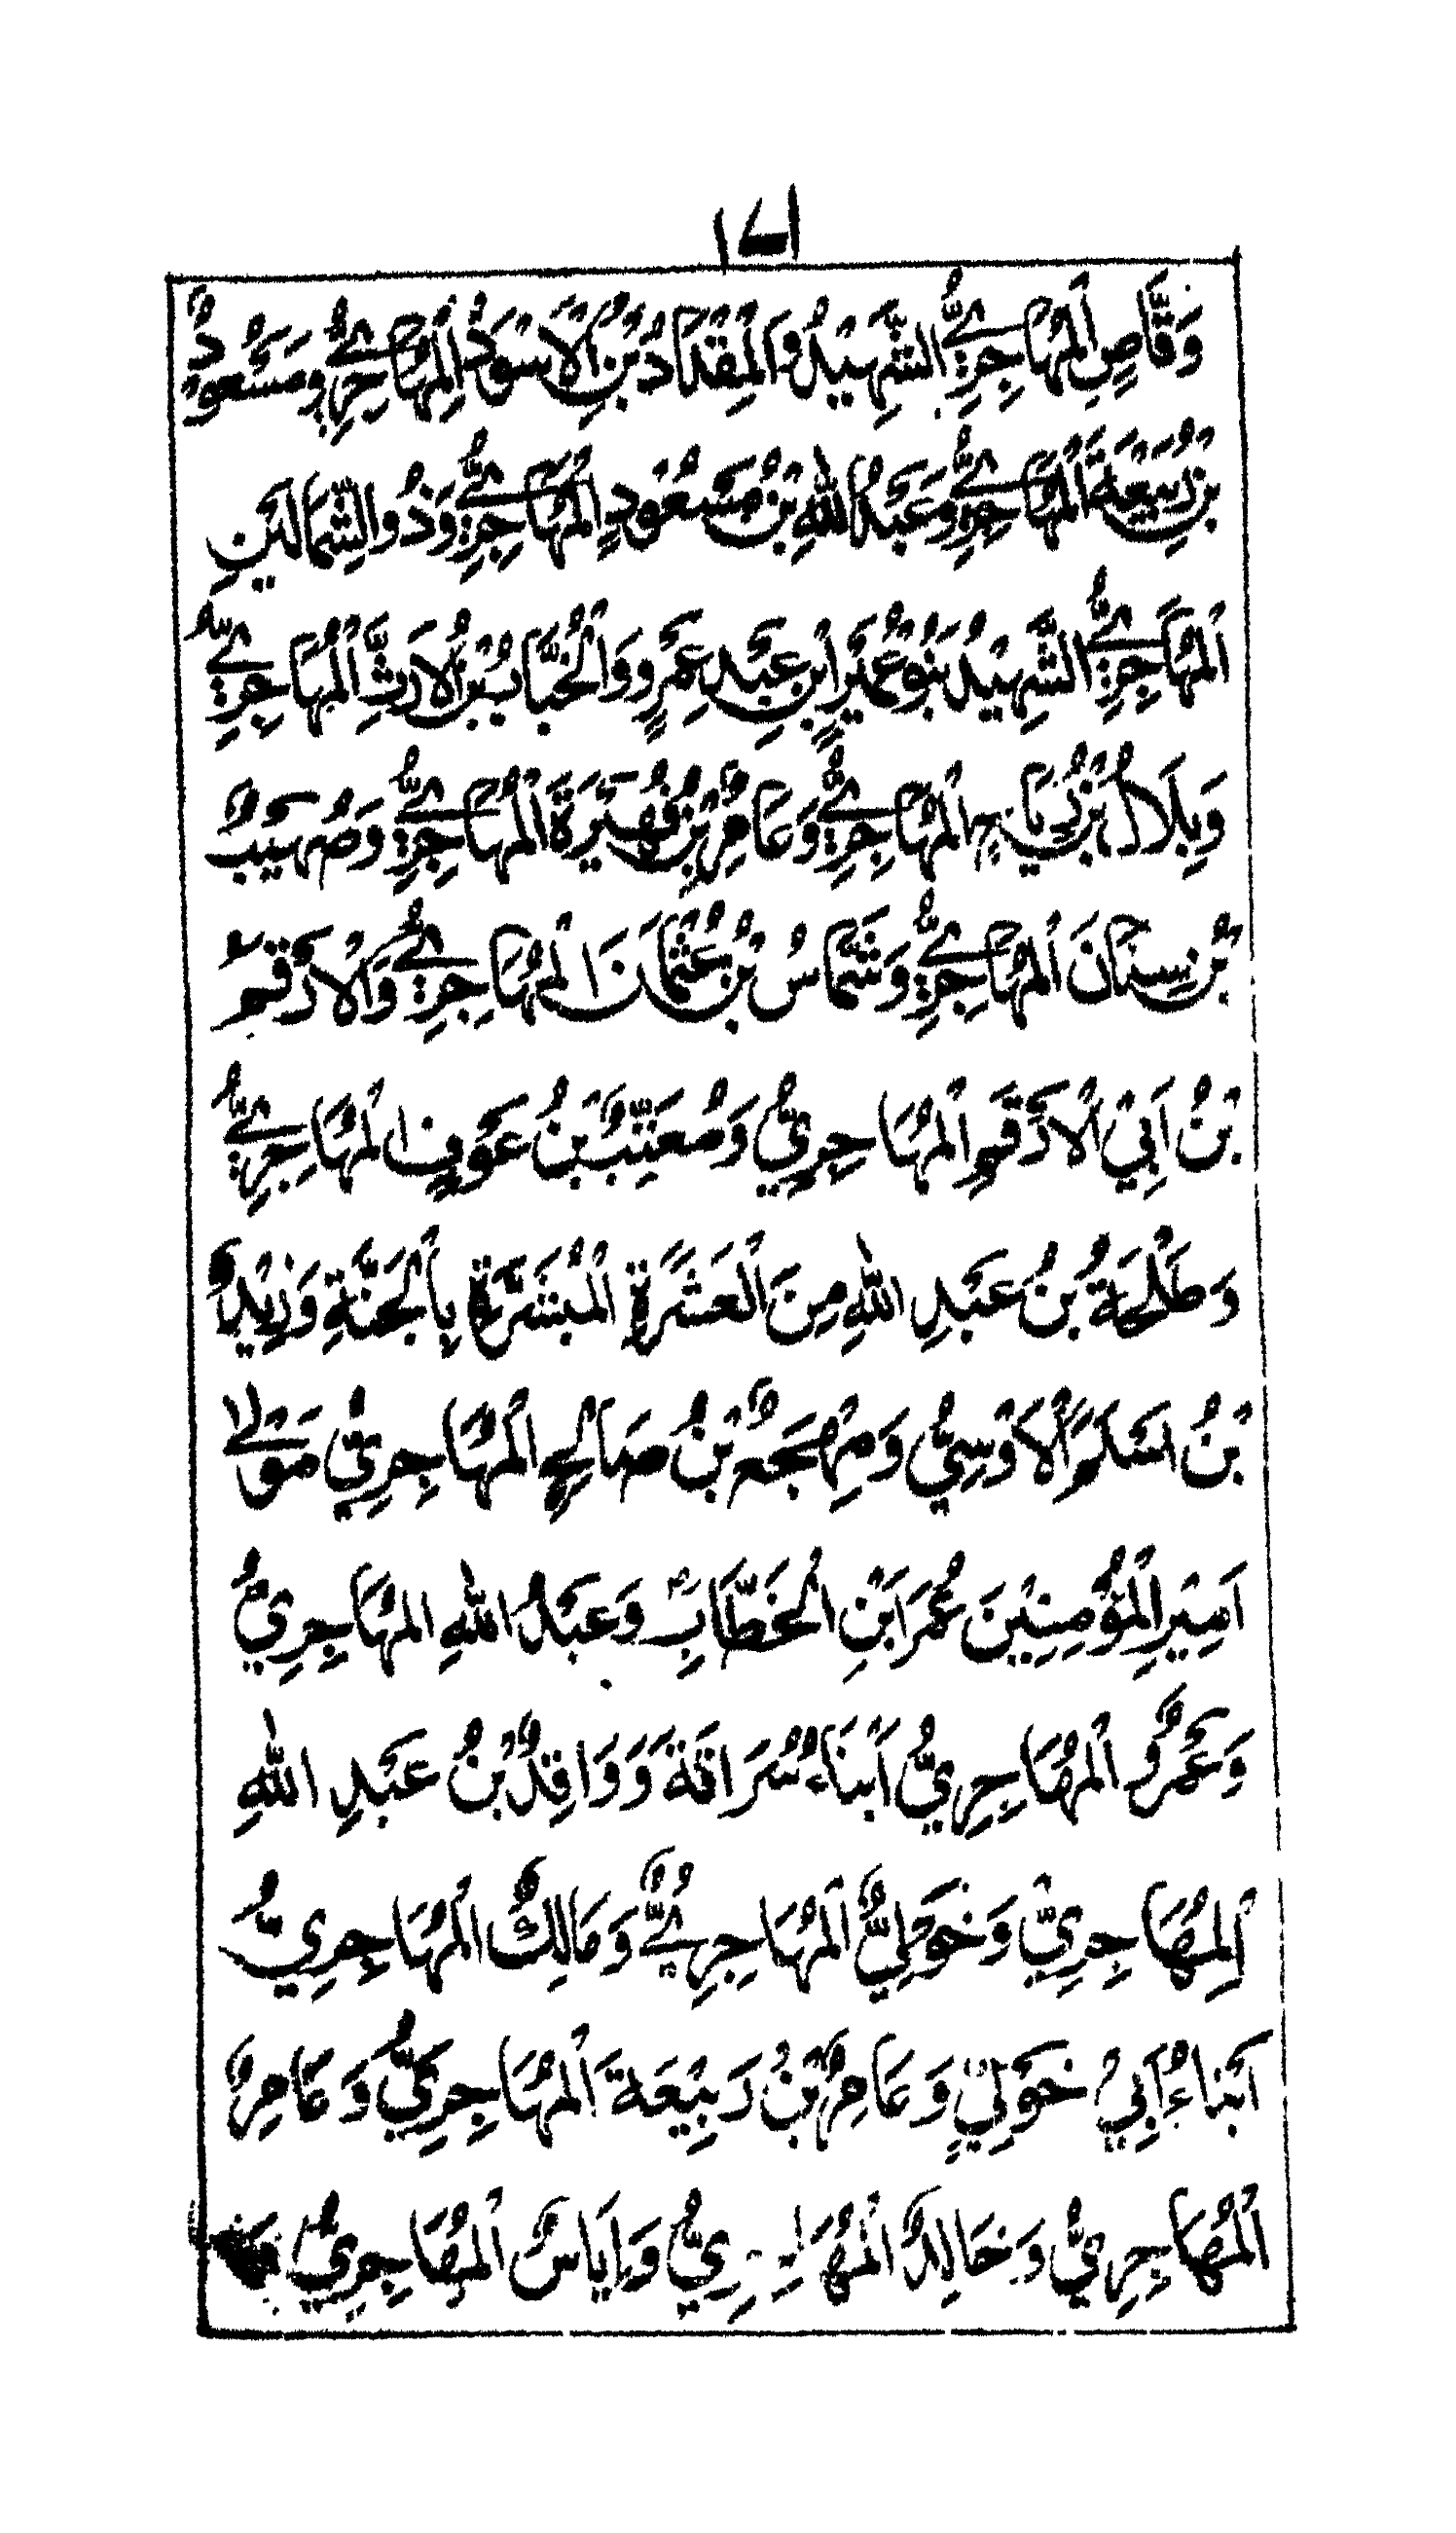 ١٧١
وَقَّاصٍ الْمُهَاجِرِيُّ الشَّهِيْدُ وَالْمِقْدَادُ بْنُ الْاَسْوَدِ الْمُهَاجِرِيُّ وَمَسْعُوْدُ
بْنُ رَبِيْعَةَ الْمُهَاجِرِيُّ وَعَبْدُ اللهِ بْنُ مَسْعُوْدٍ الْمُهَاجِرِيُّ وَذُو الشِّمَالَيْنِ
الْمُهَاجِرِيُّ الشَّهِيْدُ بْنُ عُمَيْرِ ابْنِ عَبْدِ عَمْرٍو وَالْخَبَّابُ بْنُ الْاَرَتِّ الْمُهَاجِرِيُّ
وَبِلَالُ بْنُ رَبَاحٍ الْمُهَاجِرِيُّ وَعَامِرُ بْنُ فُهَيْرَةَ الْمُهَاجِرِيُّ وَصُهَيْبُ
بْنُ سِنَانَ الْمُهَاجِرِيُّ وَشَمَّاسُ بْنُ عُثْمَانَ الْمُهَاجِرِيُّ وَالْاَرْقَمُ
بْنُ اَبِيْ الْاَرْقَمِ الْمُهَاجِرِيُّ وَمُعَتِّبُ بْنُ عَوْفٍ الْمُهَاجِرِيُّ
وَطَلْحَةُ بْنُ عَبْدِ اللهِ مِنَ الْعَشَرَةِ الْمُبَشَّرَةِ بِالْجَنَّةِ وَزَيْدُ
بْنُ اَسْلَمَ الْاَوْسِيُّ وَمِهْجَعُ بْنُ صَالِحٍ الْمُهَاجِرِيُّ مَوْلٰى
اَمِيْرِ الْمُؤْمِنِيْنَ عُمَرَ ابْنِ الْخَطَّابِ وَعَبْدُ اللهِ الْمُهَاجِرِيُّ
وَعَمْرُو الْمُهَاجِرِيُّ اَبْنَاءُ سُرَاقَةَ وَوَاقِدُ بْنُ عَبْدِ اللهِ
الْمُهَاجِرِيُّ وَخَوْلِيُّ الْمُهَاجِرِيُّ وَمَالِكُ الْمُهَاجِرِيُّ
اَبْنَاءُ اَبِيْ خَوْلِيٍّ وَعَامِرُ بْنُ رَبِيْعَةَ الْمُهَاجِرِيُّ وَعَامِرُ
الْمُهَاجِرِيُّ وَخَالِدُ الْمُهَاجِرِيُّ وَاِيَاسُ الْمُهَاجِرِيُّ